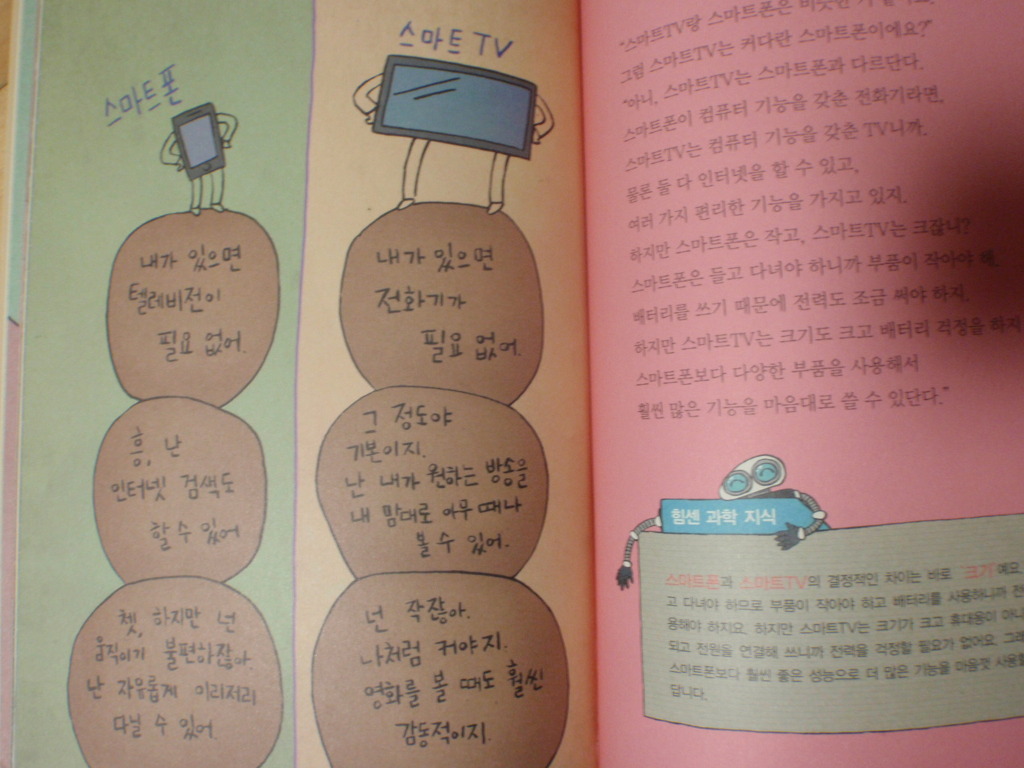 스마트폰
내가 있으면
텔레비전이
필요 없어.
흥, 난
인터넷 검색도
할 수 있어
쳇, 하지만 넌
움직이기 불편하잖아
난 자유롭게 이리저리
다닐 수 있어.
스마트TV
내가 있으면
전화기가
필요 없어.
그 정도야
기본이지.
난 내가 원하는 방송을
내 맘대로 아무 때나
볼 수 있어.
넌 작잖아.
나처럼 커야지.
영화를 볼 때도 훨씬
감동적이지.
"스마트TV랑 스마트폰은 비슷한
그럼 스마트TV는 커다란 스마트폰이에요?"
"아니, 스마트TV는 스마트폰과 다르단다.
스마트폰이 컴퓨터 기능을 갖춘 전화기라면,
스마트TV는 컴퓨터 기능을 갖춘 TV니까.
물론 둘 다 인터넷을 할 수 있고,
여러 가지 편리한 기능을 가지고 있지.
하지만 스마트폰은 작고, 스마트TV는 크잖니?
스마트폰은 들고 다녀야 하니까 부품이 작아야 해.
배터리를 쓰기 때문에 전력도 조금 써야 하지.
하지만 스마트TV는 크기도 크고 배터리 걱정을 하지
스마트폰보다 다양한 부품을 사용해서
훨씬 많은 기능을 마음대로 쓸 수 있단다."
힘센 과학 지식
스마트폰과 스마트TV의 결정적인 차이는 바로 크기예요
고 다녀야 하므로 부품이 작아야 하고 배터리를 사용하니까 전
용해야 하지요. 하지만 스마트TV는 크기가 크고 휴대용이 아니
되고 전원을 연결해 쓰니까 전력을 걱정할 필요가 없어요. 그래
스마트폰보다 훨씬 좋은 성능으로 더 많은 기능을 마음껏 사용할
답니다.